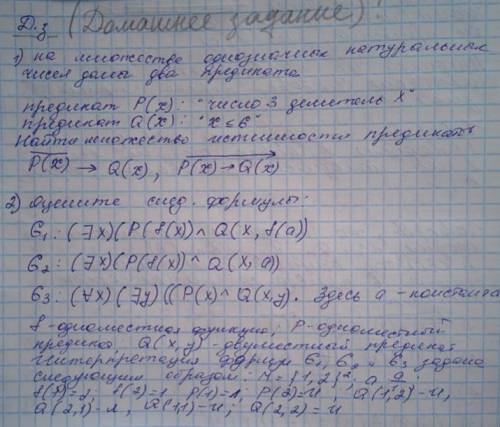 Д.з (Домашнее задание)!
1) на множестве однозначных натуральных
чисел даны два предиката
предикат P(x): "число 3 делитель x"
предикат Q(x): "x ≤ 6"
Найти множество истинности предикатов
P̅(̅x̅)̅ → Q(x), P̅(̅x̅)̅→̅Q̅(̅x̅)̅
2) Оцените след. формулы:
G₁: (∃x)(P(f(x)) ∧ Q(x, f(a))
G₂: (∃x)(P(f(x)) ∧ Q(x, a))
G₃: (∀x)(∃y)((P(x) ∧ Q(x,y). Здесь a - константа
f - одноместная функция; P - одноместный
предикат, Q(x,y) - двуместный предикат
Интерпретация формул G₁, G₂ и G₃ задана
следующим образом: M={1,2},
f(2)=1, P(1)=Л, P(2)=И, Q(1,2)-И,
Q(2,1)-Л, Q(1,1)-И; Q(2,2)=И